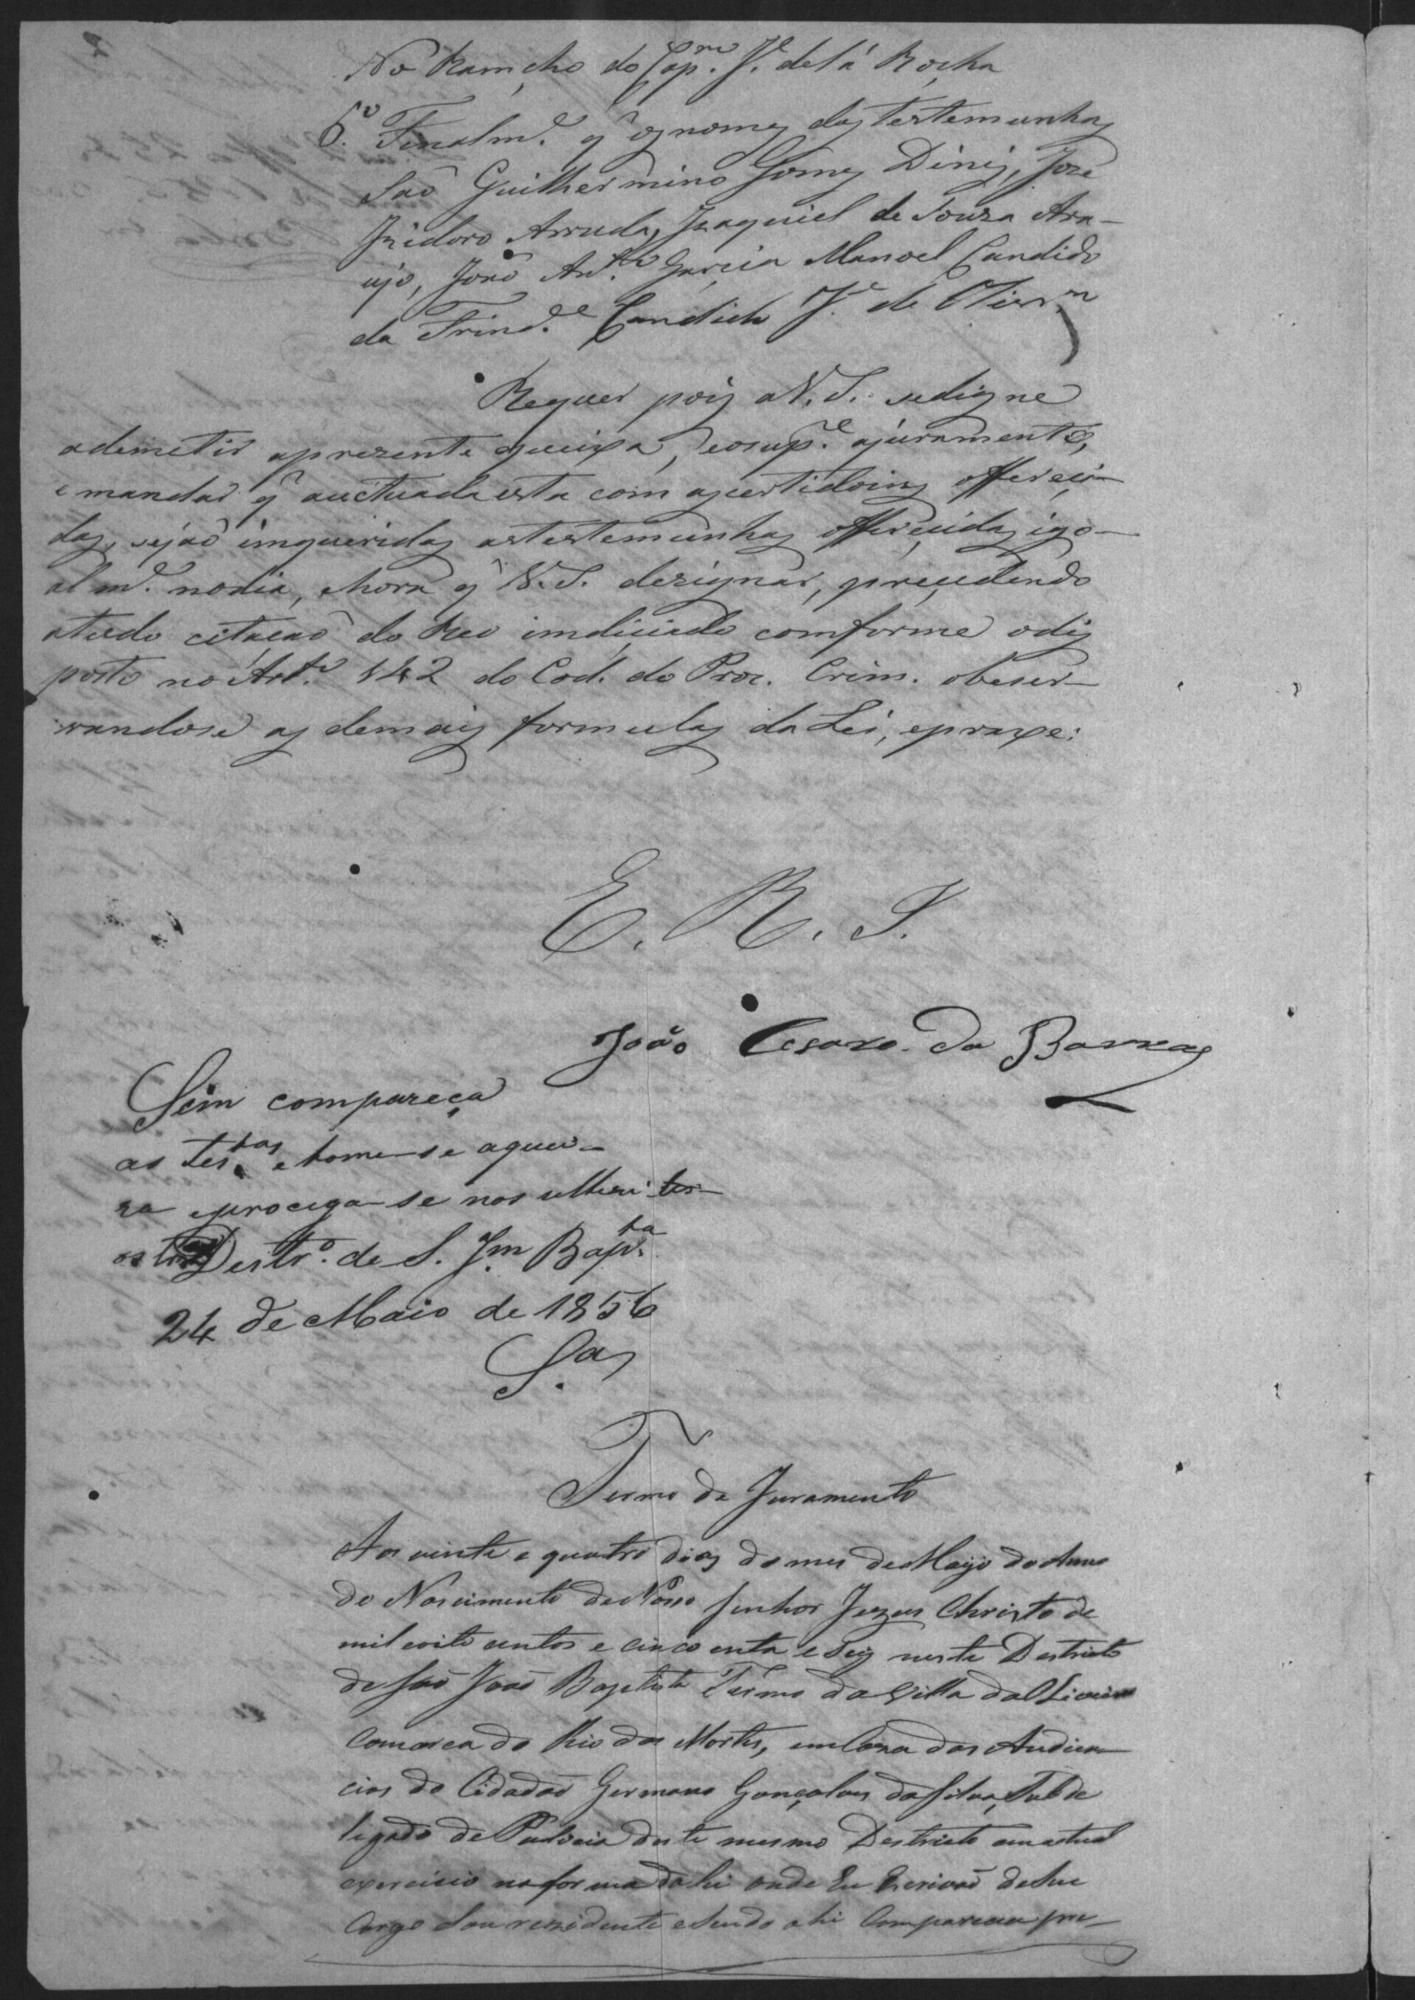 No Ramcho do Cap.m J.e de Sá Rocha
6.º Finalm.e q' os nomes das testemunhas
São Guilhermino Gomes Dinis, José
Izidoro Arruda, Izaquiel de Souza Ara-
ujo, João Ant.º Garcia Manoel Candido
da Trind.e Candido J.e de Olivr.a
Requer pois a V. S. sedigne
ademetir aprezente queixa, eosup.e ajuramento,
e mandar q' auctuada esta com as certidoins offereci-
das, sejão imqueridas as testemunhas offerecidas igo-
alm.e nodia, ehora q' V. S. dezignar, precedendo
atudo citacão do Reo imdiciado comforme odis
posto no Art.º 142 do Cod. do Proc. Crim. obeser-
vandose as demais formulas da Lei, epraxe:
E. R. J.
João Cesario da Barras
Sim compareça
as test.as e tome-se a quei-
xa eprociga-se nos ulteri
Destr.º de S. J.m Bap.ta
24 de Maio de 1856
S.a
Termo de Juramento
Aos vinte e quatro dias do mes de Mayo do Anno
do Nascimento de Nosso Senhor Jezus Christo de
mil eoito centos e cincoenta e Seis neste Destricto
de São João Baptista Termo da Villa da Oliveira
Comarca do Rio das Mortes, em Caza das Audien-
cias do Cidadão Germano Gonçalves da Silva, Subde
legado de Policia deste mesmo Destricto em actual
exercicio na forma da Lei onde Eu Escrivão de Seu
Cargo Sou rezidente e Sendo ahi Compareceu pre-